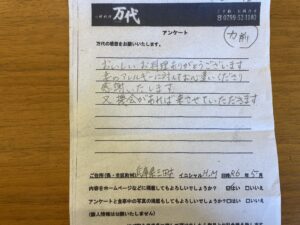 万代
☎0799-52-1180
アンケート
万代の感想をお願いいたします。
おいしいお料理ありがとうございます
妻のアレルギーに対してお気遣いくださり
感謝いたします
又、機会があれば来させていただきます
ご住所(県・市区町村) 兵庫県三田市 イニシャル H.M 日時 R6年5月
内容をホームページなどに掲載してもよろしいでしょうか? ☑はい □いいえ
アンケートと食事中の写真の掲載もしてもよろしいでしょうか? □はい □いいえ
(個人情報はお出しいたしません)